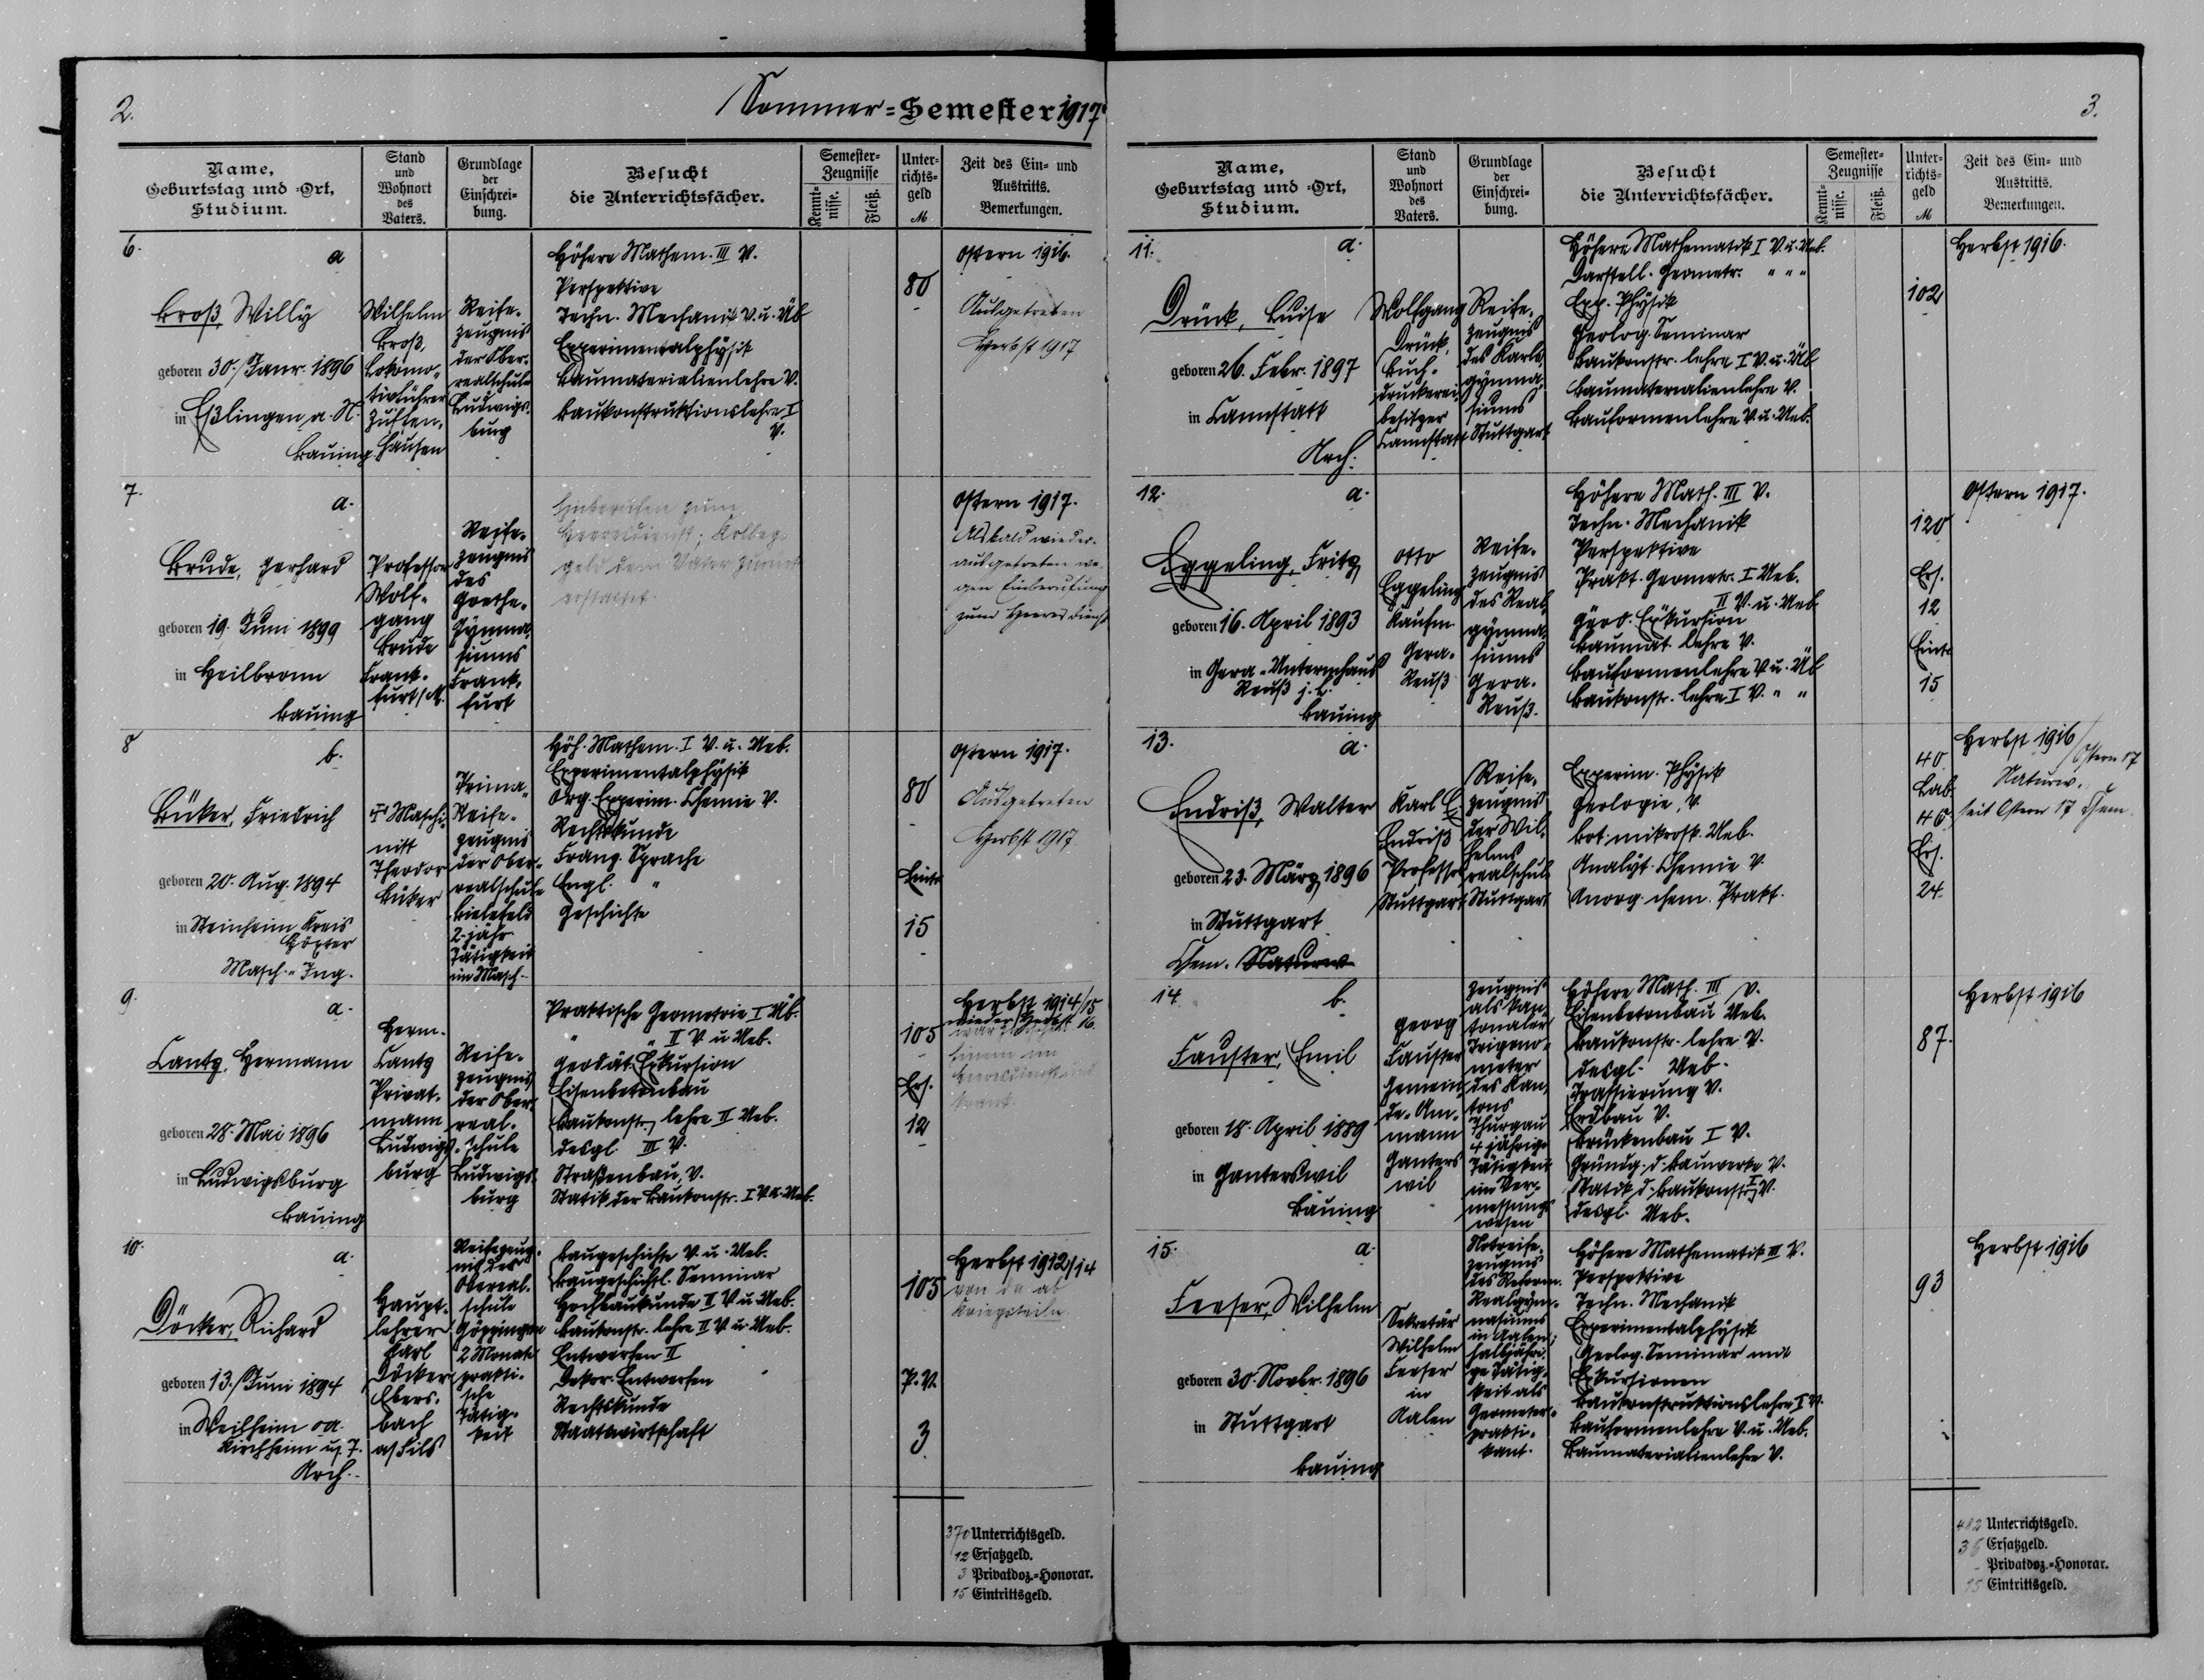 2.
Sommer=Semester 1917
3.
Name,
Geburtstag und =Ort,
Studium.
Stand
und
Wohnort
des
Vaters.
Grundlage
der
Einschrei-
bung.
Besucht
die Unterrichtsfächer.
Semester-
Zeugnisse
Kennt-
nisse.
Fleiß.
Unter-
richts-
geld
M
Zeit des Ein- und
Austritts.
Bemerkungen.
6.
a
Kroß, Willy
geboren 30. Janr. 1896
in Eßlingen a. N.
Bauing
Wilhelm
Kroß,
Lokomo-
tivführer
Zuffen-
hausen
Reife-
zeugnis
der Ober-
realschule
Ludwigs-
burg
Höhere Mathem. III V.
Perspektive
Techn. Mechanik V. u. Üb
Experimentalphysik
Baumaterialienlehre V.
Baukonstruktionslehre I
V.
80
Ostern 1916.
Ausgetreten
Herbst 1917
7.
a.
Brude, Gerhard
geboren 19. Juni 1899
in Heilbronn
Bauing
Professor
Wolf-
gang
Brude
Frank-
furt/M.
Reife-
zeugnis
des
Goethe-
Gymna-
siums
Frank-
furt
Einberufen zum
Heeresdienst; Kolleg-
geld dem Vater zurück
erstattet.
Ostern 1917.
Alsbald wieder
ausgetreten we-
gen Einberufung
zum Heeresdienst
8
b.
Büker, Friedrich
geboren 20. Aug. 1894
in Steinheim Kreis
Höxter
Masch.-Ing.
† Maschi-
nist
Theodor
Büker
Prima-
Reife-
zeugnis
der Ober-
realschule
Bielefeld
2-jähr
Tätigkeit
im Masch.-
Höh. Mathem. I V. u. Ueb.
Experimentalphysik
Org. Experim. Chemie V.
Rechtskunde
Franz. Sprache
Engl. "
Geschichte
80
Eintr
15
Ostern 1917.
Ausgetreten
Herbst 1917
9.
a.
Cantz, Hermann
geboren 28. Mai 1896
in Ludwigsburg
Bauing
Herm.
Cantz
Privat-
mann
Ludwigs-
burg
Reife-
zeugnis
der Ober-
real-
schule
Ludwigs-
burg
Praktische Geometrie I Üb.
" " II V. u Ueb.
Geodät. Exkursion
Eisenbetonbau
Baukonstr. lehre II Ueb.
desgl. III V.
Straßenbau, V.
Statik der Baukonstr. I V. u. Ueb.
105
Ers.
12
Herbst 1914/15
wieder Herbst 16.
Heeresdienst und
krank.
10.
a.
Döcker, Richard
geboren 13. Juni 1894
in Weilheim oa.
Kirchheim u/T.
Arch.
Haupt-
lehrer
Karl
Döcker
Ebers-
bach
a/Fils
Reifezeug-
nis der
Oberreal-
schule
Göppingen
2 Monate
prakti-
sche
Tätig-
keit
Baugeschichte V. u. Ueb.
Baugeschichtl. Seminar
Hochbaukunde II V u. Ueb.
Baukonstr. lehre II V. u. Ueb.
Entwerfen II
Dekor. Entwerfen
Rechtskunde
Staatswirtschaft
105
P. V.
3
Herbst 1912/14
von da ab
Kriegsteiln.
370 Unterrichtsgeld.
12 Ersatzgeld.
3 Privatdoz.=Honorar.
15 Eintrittsgeld.
Name,
Geburtstag und =Ort,
Studium.
Stand
und
Wohnort
des
Vaters.
Grundlage
der
Einschrei-
bung.
Besucht
die Unterrichtsfächer.
Semester-
Zeugnisse
Kennt-
nisse.
Fleiß.
Unter-
richts-
geld
M
Zeit des Ein- und
Austritts.
Bemerkungen.
11.
a.
Drück, Luise
geboren 26. Febr. 1897
in Cannstatt
Arch.
Wolfgang
Drück,
Buch-
druckerei-
besitzer
Cannstatt
Reife-
zeugnis
des Karls-
gymna-
siums
Stuttgart
Höhere Mathematik I V. u. Ueb.
Darstell. Geometr. " " "
Exp. Physik
Geolog. Seminar
Baukonstr. lehre I V. u. Üb
Baumaterialienlehre V.
Bauformenlehre V. u. Ueb.
102
Herbst 1916.
12.
a.
Eggeling, Fritz
geboren 16. April 1893
in Gera-Untermhaus
Reuß j. L.
Bauing
Otto
Eggeling
Kaufm
Gera-
Reuß
Reife-
zeugnis
des Real-
gymna-
siums
Gera-
Reuß.
Höhere Math. III V.
Techn. Mechanik
Perspektive
Prakt. Geometr. I Ueb.
II V. u. Ueb
Geod. Exkursion
Baumat. lehre V.
Bauformenlehre V u. Üb
Baukonstr. lehre I V. " "
120
Ers.
12
Eintr
15
Ostern 1917.
13.
a.
Endriß, Walter
geboren 23. März 1896
in Stuttgart
Chem. Naturw
Karl E.
Endriß
Professor
Stuttgart
Reife-
zeugnis
der Wil-
helms
realschule
Stuttgart
Experim. Physik
Geologie, V.
Bot. mikrosk. Ueb.
Analyt. Chemie V.
Anorg. chem. Prakt.
40
Lab
46
Ers.
24.
Herbst 1916/Ostern 17
Naturw.
seit Ostern 17 Chem.
14.
b.
Fauster, Emil
geboren 18. April 1889
in Ganterswil
Bauing
Georg
Fauster
Gemein-
de-Am-
mann
Ganters
wil
Zeugnis
als kan-
tonaler
Trigono-
meter
des Kan-
tons
Thurgau
4 jährige
Tätigkeit
im Ver-
messungs
wesen
Höhere Math. III V.
Eisenbetonbau Ueb.
Baukonstr. lehre V.
desgl. Ueb.
Trassierung V.
Erdbau V.
Brückenbau I V.
Gründg. d. Bauwerke V.
Statik d. Baukonstr. I V.
desgl. Ueb.
87.
Herbst 1916
15.
a.
Feeser, Wilhelm
geboren 30. Novbr. 1896
in Stuttgart
Bauing
Sekretär
Wilhelm
Feeser
in
Aalen
Notreife-
zeugnis
des Reform-
Realgym-
nasiums
in Aalen;
halbjähri-
ge Tätig-
keit als
Geometer-
prakti-
kant.
Höhere Mathematik III V.
Perspektive
Techn. Mechanik
Experimentalphysik
Geolog. Seminar mit
Exkursionen
Baukonstruktionslehre I V.
Bauformenlehre V. u. Ueb.
Baumaterialienlehre V.
93
Herbst 1916
482 Unterrichtsgeld.
36 Ersatzgeld.
- Privatdoz.=Honorar.
15 Eintrittsgeld.